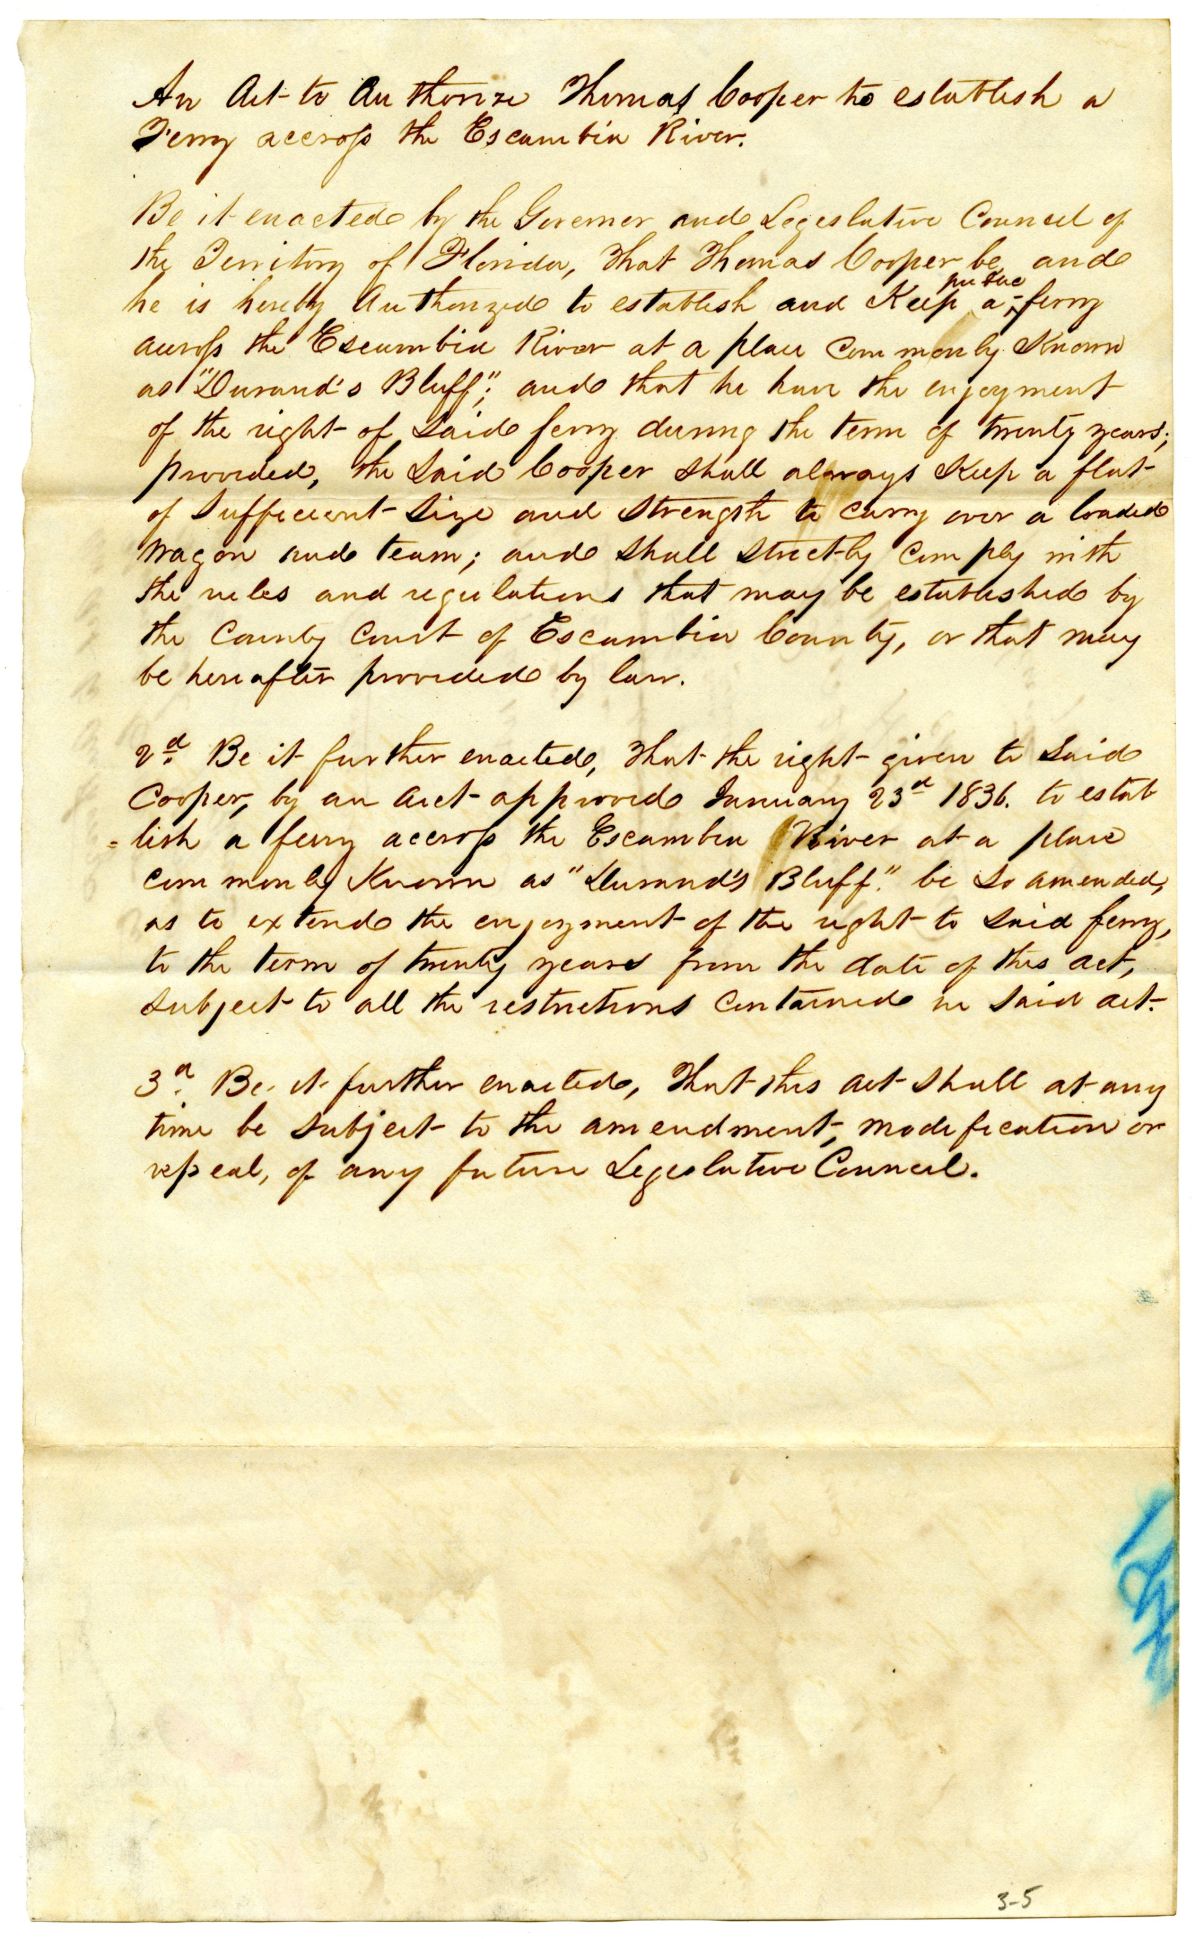 An Act to Authorize Thomas Cooper to establish a
Ferry accross the Escambia River.
Be it enacted by the Governer and Legeslative Council of
the Territory of Florida, That Thomas Cooper be, and
he is hereby Authorized to establish and Keep a ferry
public
across the Escambia River at a place commonly Known
as "Durand's Bluff"; and that he have the enjoyment
of the right of said ferry during the term of twenty years;
provided, the said Cooper shall always Keep a flat
of sufficient size and strength to carry over a loaded
wagon and team; and shall strictly comply with
the rules and regulations that may be established by
the County Court of Escambia County, or that may
be hereafter provided by law.
2d. Be it further enacted, That the right given to said
Cooper, by an act approved January 23d 1836. to estab
=lish a ferry accross the Escambia River at a place
commonly Known as "Durand's Bluff." be so amended,
as to extend the enjoyment of the right to said ferry,
to the term of twenty years from the date of this act,
subject to all the restrictions contained in said act.
3d. Be it further enacted, That this act shall at any
time be subject to the amendment, modification or
repeal, of any future Legeslative Council.
3-5